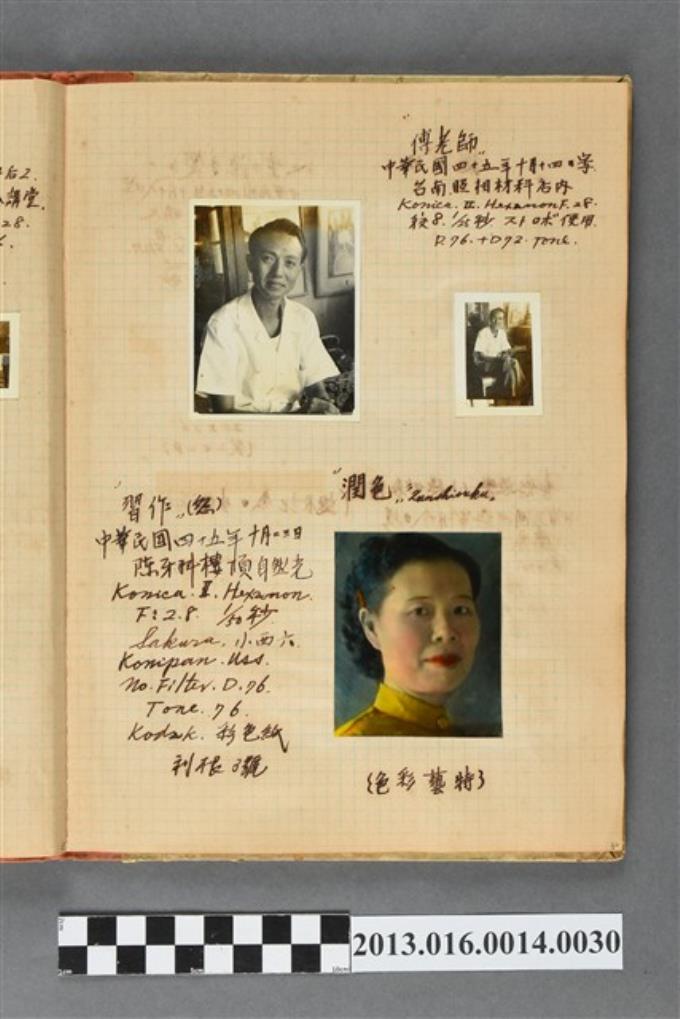 "傅老師"
中華民國四十五年十月十四日
台南照相材料店內
Konica. Ⅱ. Hexanon F. 28.
較8. 1/50秒 ストロボ使用.
D.76.+D72. Tone.
"習作"
中華民國四十五年十月二三日
陈牙科樓頂自然光
Konica. Ⅱ. Hexanon.
F:2.8. 1/50秒
Sakura. 小西六
Konipan. USS.
No. Filter. D.76.
Tone. 76.
Kodak. 彩色紙
利根3號
"潤色"
(色彩藝特)
28.
2013.016.0014.0030